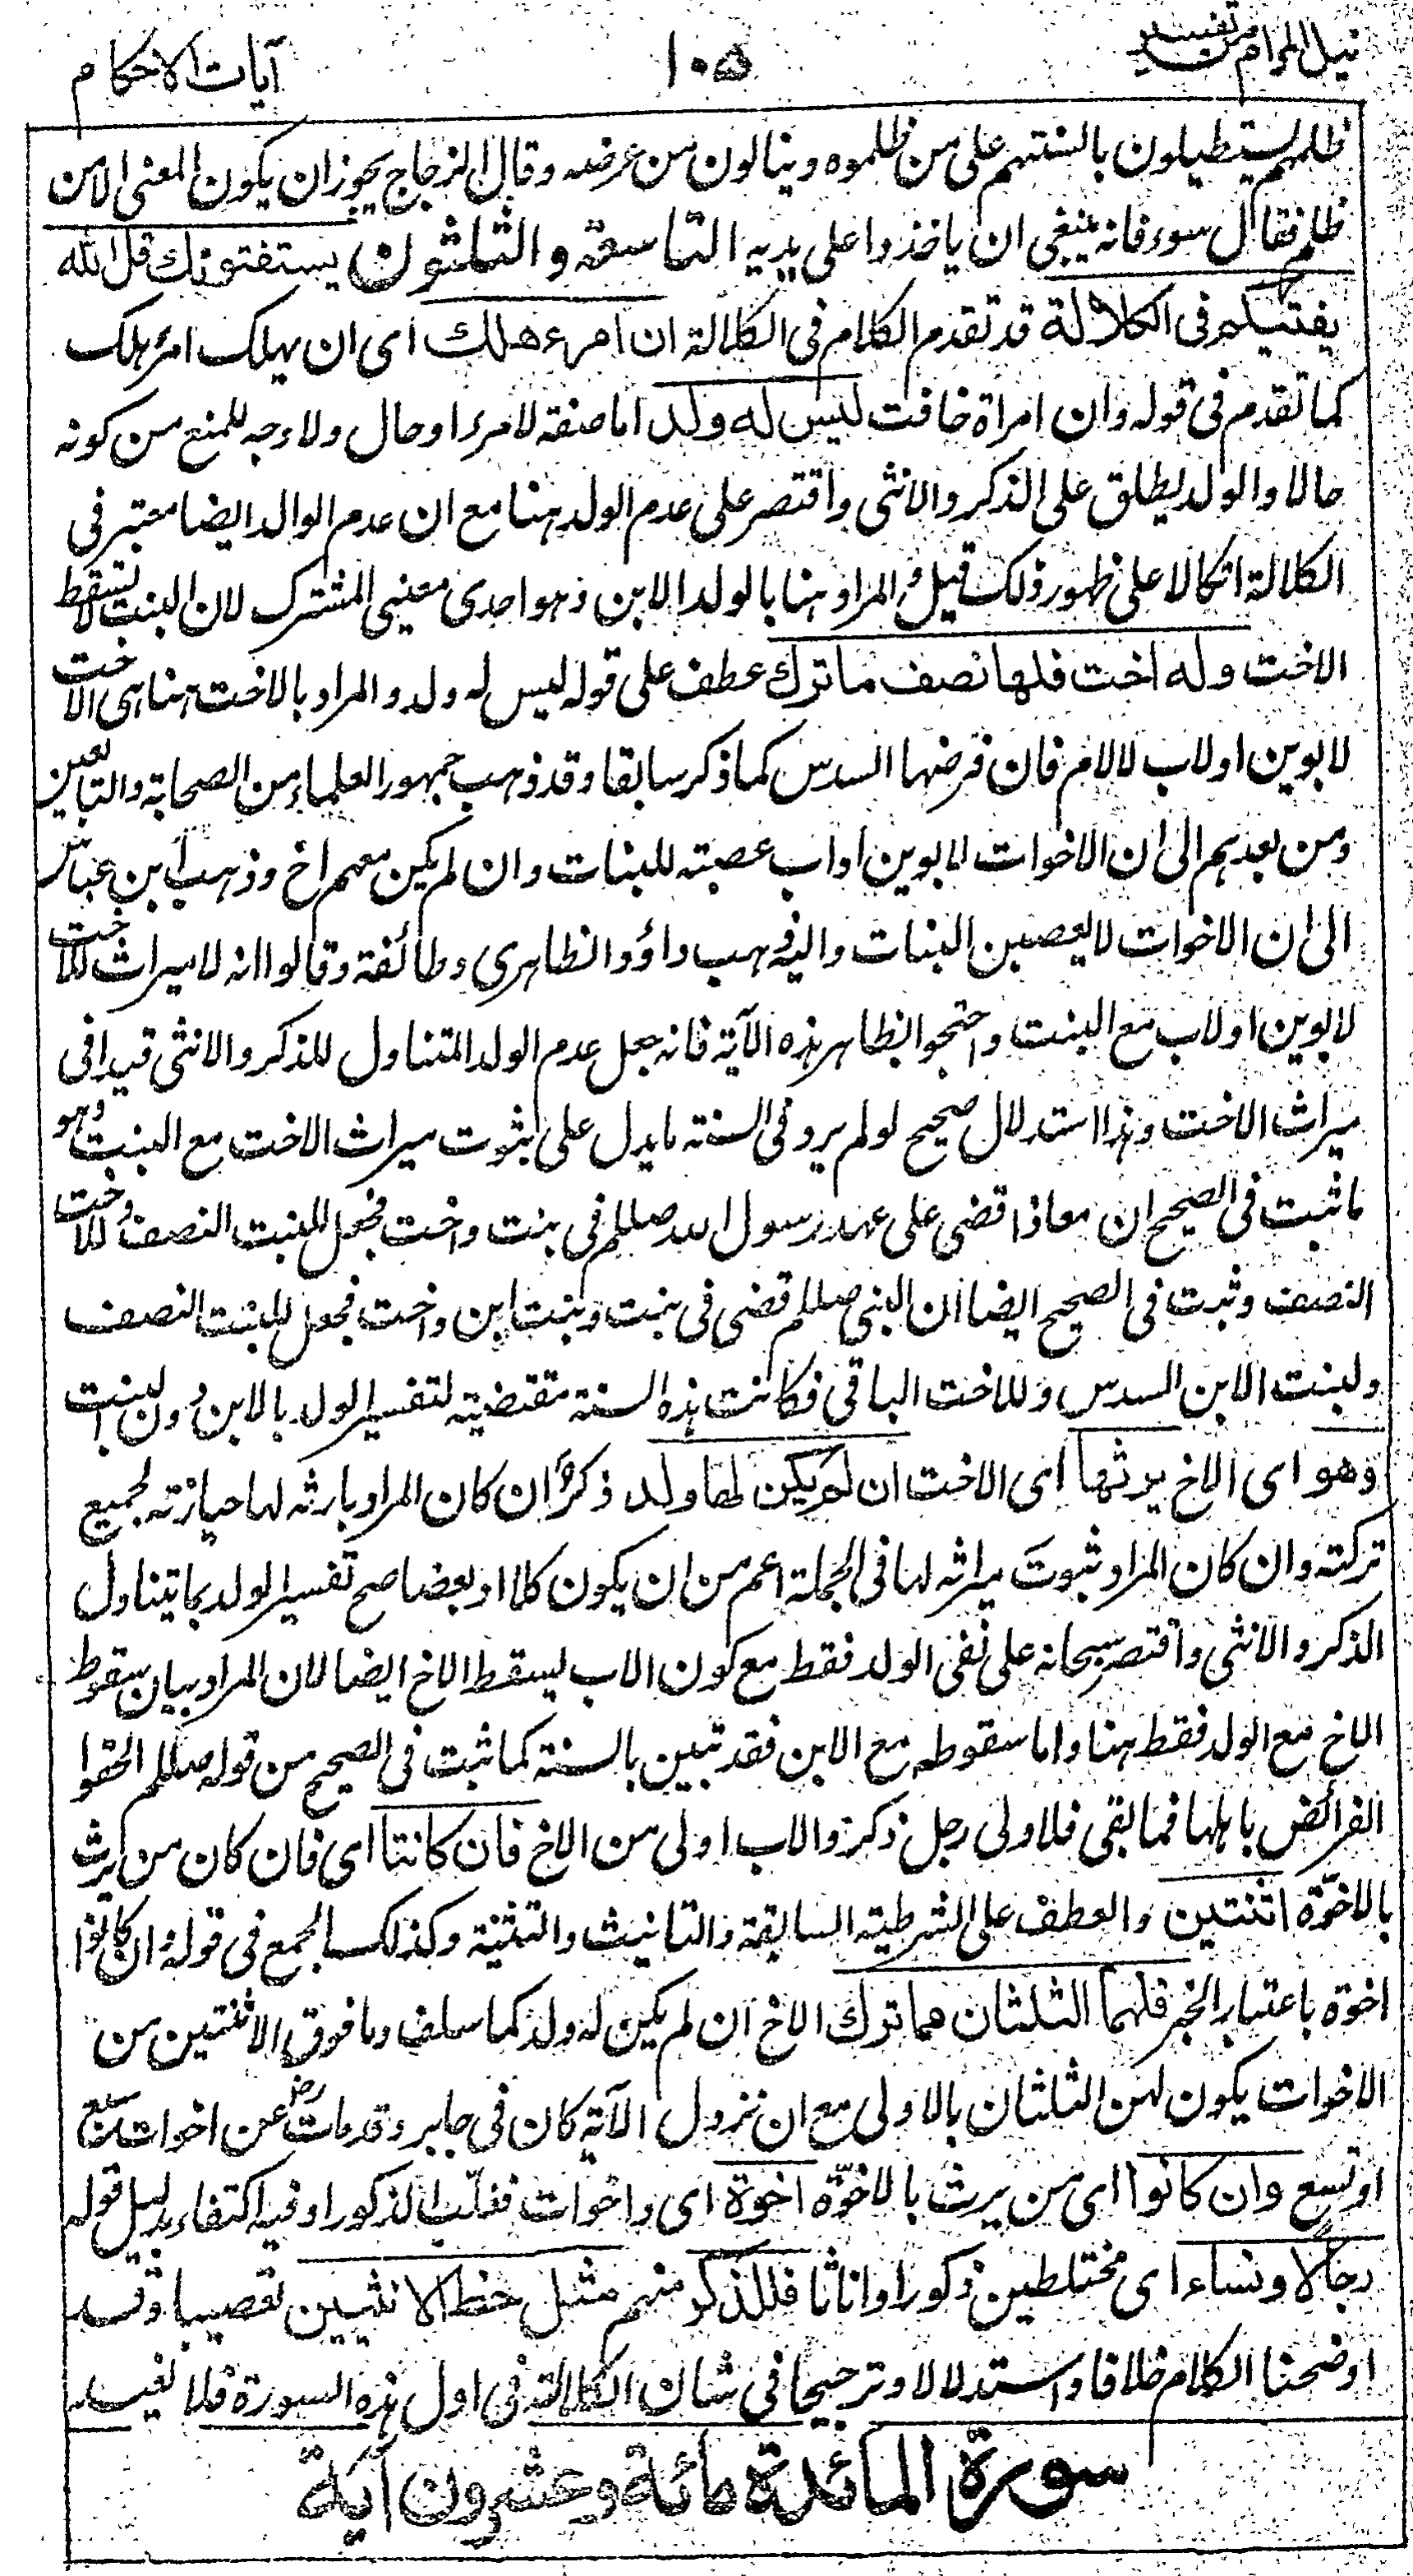 نيل المرام من تفسير
١٠٥
آيات الاحكام
ظلمهم يستطيلون بالسنتهم على من ظلموه وينالون من عرضه وقال الزجاج يجوز ان يكون المعنى الا من
ظلم فقال سوء فانه ينبغى ان ياخذوا على يديه التاسعة والثلثون يستفتونك قل الله
يفتيكم فى الكلالة قد تقدم الكلام فى الكلالة ان امرء هلك اى ان يهلك امرء هلك
كما تقدم فى قوله وان امراة خافت ليس له ولد اما صفة لامرء او حال ولا وجه للمنع من كونه
حالا والولد يطلق على الذكر والانثى واقتصر على عدم الولد هنا مع ان عدم الوالد ايضا معتبر فى
الكلالة اتكالا على ظهور ذلك قيل والمراد هنا بالولد الابن وهو احدى معنيى المشترك لان البنت لا تسقط
الاخت وله اخت فلها نصف ما ترك عطف على قوله ليس له ولد والمراد بالاخت هنا هى الاخت
لابوين او لاب لا لام فان فرضها السدس كما ذكر سابقا وقد ذهب جمهور العلماء من الصحابة والتابعين
ومن بعدهم الى ان الاخوات لابوين او اب عصبة للبنات وان لم يكن معهم اخ وذهب ابن عباس
الى ان الاخوات لا يعصبن البنات واليه ذهب داؤد الظاهرى وطائفة وقالوا انه لا ميراث للاخت
لابوين او لاب مع البنت واحتجوا بظاهر هذه الآية فانه جعل عدم الولد المتناول للذكر والانثى قيدا فى
ميراث الاخت وهذا استدلال صحيح لو لم يرد فى السنة ما يدل على ثبوت ميراث الاخت مع البنت وهو
ما ثبت فى الصحيح ان معاذا قضى على عهد رسول الله صللم فى بنت واخت فجعل للبنت النصف وللاخت
النصف وثبت فى الصحيح ايضا ان النبى صللم قضى فى بنت وبنت ابن واخت فجعل للبنت النصف
ولبنت الابن السدس وللاخت الباقى فكانت هذه السنة مقتضية لتفسير الولد بالابن دون البنت
وهو اى الاخ يرثها اى الاخت ان لم يكن لها ولد ذكر ان كان المراد بارثه لها حيازته لجميع
تركته وان كان المراد ثبوت ميراثه لها فى الجملة اعم من ان يكون كلا او بعضا صح تفسير الولد بما يتناول
الذكر والانثى واقتصر سبحانه على نفى الولد فقط مع كون الاب يسقط الاخ ايضا لان المراد بيان سقوط
الاخ مع الولد فقط هنا واما سقوطه مع الابن فقد تبين بالسنة كما ثبت فى الصحيح من قوله صللم الحقوا
الفرائض باهلها فما بقى فلاولى رجل ذكر والاب اولى من الاخ فان كانتا اى فان كان من يرث
بالاخوّة اثنتين والعطف على الشرطية السابقة والتانيث والتثنية وكذلك الجمع فى قوله وان كانوا
اخوة باعتبار الخبر فلهما الثلثان مما ترك الاخ ان لم يكن له ولد كما سلف وما فوق الاثنتين من
الاخوات يكون لهن الثلثان بالاولى مع ان نزول الآية كان فى جابر رض وقد مات عن اخوات سبع
او تسع وان كانوا اى من يرث بالاخوّة اخوة اى واخوات فغلّب الذكور او فيه اكتفاء بدليل قوله
رجالا ونساء اى مختلطين ذكورا واناثا فللذكر منهم مثل حظ الانثيين تعصيبا وقد
اوضحنا الكلام خلافا واستدلالا وترجيحا فى شان الكلالة فى اول هذه السورة فلا نعيد
سورة المائدة مائة وعشرون آية